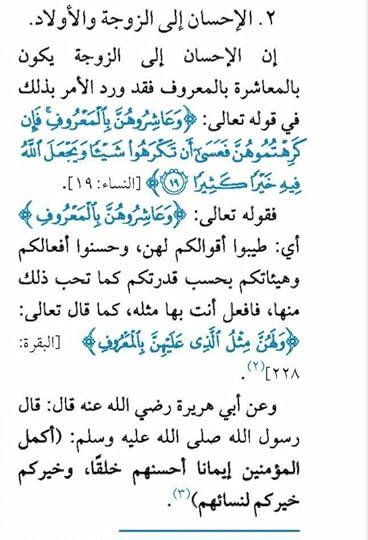 ٢. الإحسان إلى الزوجة والأولاد.
إن الإحسان إلى الزوجة يكون
بالمعاشرة بالمعروف فقد ورد الأمر بذلك
في قوله تعالى: ﴿وَعَاشِرُوهُنَّ بِالْمَعْرُوفِ ۚ فَإِن
كَرِهْتُمُوهُنَّ فَعَسَىٰٓ أَن تَكْرَهُوا۟ شَيْـًٔا وَيَجْعَلَ ٱللَّهُ
فِيهِ خَيْرًا كَثِيرًا ۝١٩﴾ [النساء: ١٩].
فقوله تعالى: ﴿وَعَاشِرُوهُنَّ بِالْمَعْرُوفِ﴾
أي: طيبوا أقوالكم لهن، وحسنوا أفعالكم
وهيئاتكم بحسب قدرتكم كما تحب ذلك
منها، فافعل أنت بها مثله، كما قال تعالى:
﴿وَلَهُنَّ مِثْلُ الَّذِى عَلَيْهِنَّ بِالْمَعْرُوفِ﴾ [البقرة:
٢٢٨](٢).
وعن أبي هريرة رضي الله عنه قال: قال
رسول الله صلى الله عليه وسلم: (أكمل
المؤمنين إيمانا أحسنهم خلقًا، وخيركم
خيركم لنسائهم)(٣).